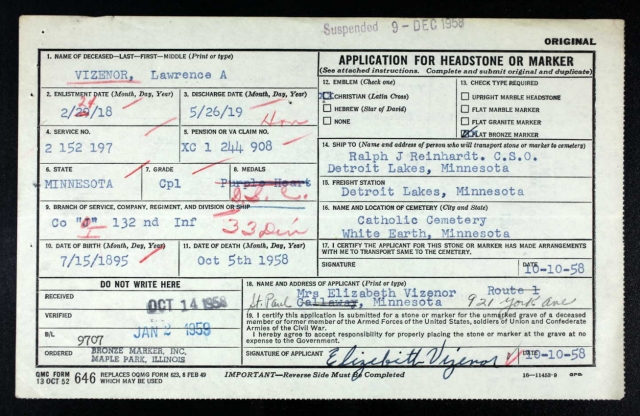 Suspended 9-DEC 1958
ORIGINAL
1. NAME OF DECEASED—LAST—FIRST—MIDDLE (Print or type)
VIZENOR, Lawrence A
2. ENLISTMENT DATE (Month, Day, Year)
2/28/18
24
3. DISCHARGE DATE (Month, Day, Year)
5/26/19
Hon
4. SERVICE NO.
2 152 197
5. PENSION OR VA CLAIM NO.
XC 1 244 908
6. STATE
MINNESOTA
7. GRADE
Cpl
8. MEDALS
Purple Heart
D.S.C.
9. BRANCH OF SERVICE, COMPANY, REGIMENT, AND DIVISION OR SHIP
Co "J" 132 nd Inf
I
33 Div
10. DATE OF BIRTH (Month, Day, Year)
7/15/1895
11. DATE OF DEATH (Month, Day, Year)
Oct 5th 1958
APPLICATION FOR HEADSTONE OR MARKER
(See attached instructions. Complete and submit original and duplicate)
12. EMBLEM (Check one)
CHRISTIAN (Latin Cross)
HEBREW (Star of David)
NONE
13. CHECK TYPE REQUIRED
UPRIGHT MARBLE HEADSTONE
FLAT MARBLE MARKER
FLAT GRANITE MARKER
FLAT BRONZE MARKER
14. SHIP TO (Name and address of person who will transport stone or marker to cemetery)
Ralph J Reinhardt. C.S.O.
Detroit Lakes, Minnesota
15. FREIGHT STATION
Detroit Lakes, Minnesota
16. NAME AND LOCATION OF CEMETERY (City and State)
Catholic Cemetery
White Earth, Minnesota
17. I CERTIFY THE APPLICANT FOR THIS STONE OR MARKER HAS MADE ARRANGEMENTS
WITH ME TO TRANSPORT SAME TO THE CEMETERY.
SIGNATURE
DATE
10-10-58
DO NOT WRITE HERE
RECEIVED
OCT 14 1958
VERIFIED
JAN 2 1959
B/L
9707
ORDERED
BRONZE MARKER, INC.
MAPLE PARK, ILLINOIS
18. NAME AND ADDRESS OF APPLICANT (Print or type)
Mrs Elizabeth Vizenor Route 1
St. Paul Callaway, Minnesota 921 York Ave
19. I certify this application is submitted for a stone or marker for the unmarked grave of a deceased
member or former member of the Armed Forces of the United States, soldiers of Union and Confederate
Armies of the Civil War.
I hereby agree to accept responsibility for properly placing the stone or marker at the grave at no
expense to the Government.
SIGNATURE OF APPLICANT
Elizebith Vizenor
DATE
10-10-58
QMC FORM
13 OCT 52 646 REPLACES OQMG FORM 623, 8 FEB 49
WHICH MAY BE USED
IMPORTANT—Reverse Side Must be Completed
16—11453-9 GPO